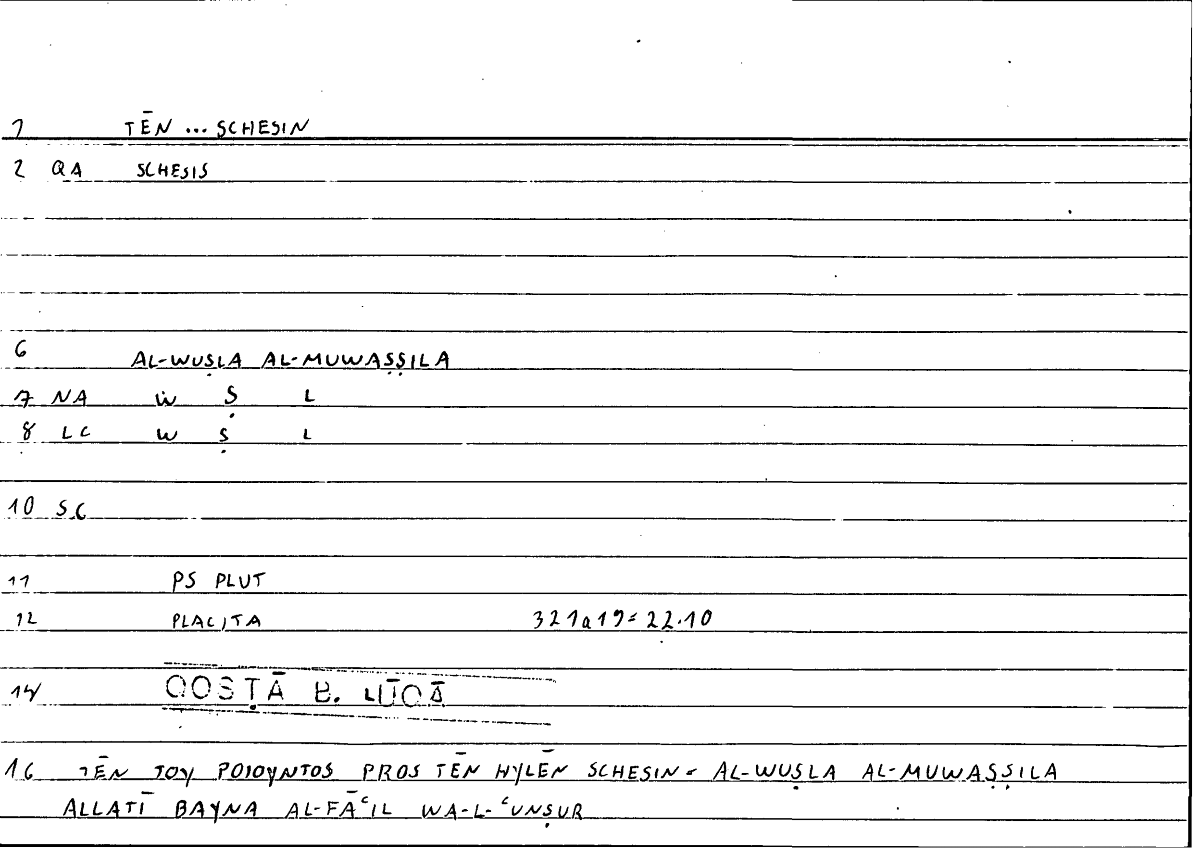 1 TĒN ... SCHESIN
2 QA SCHESIS
6 AL-WUṢLA AL-MUWAṢṢILA
7 NA W Ṣ L
8 LC W Ṣ L
10 SC
11 PS PLUT
12 PLACITA 321a19 = 22.10
14 QOSṬĀ B. LŪQĀ
16 TĒN TOY POIOYNTOS PROS TĒN HYLĒN SCHESIN = AL-WUṢLA AL-MUWAṢṢILA
ALLATĪ BAYNA AL-FĀʿIL WA-L-ʿUNṢUR